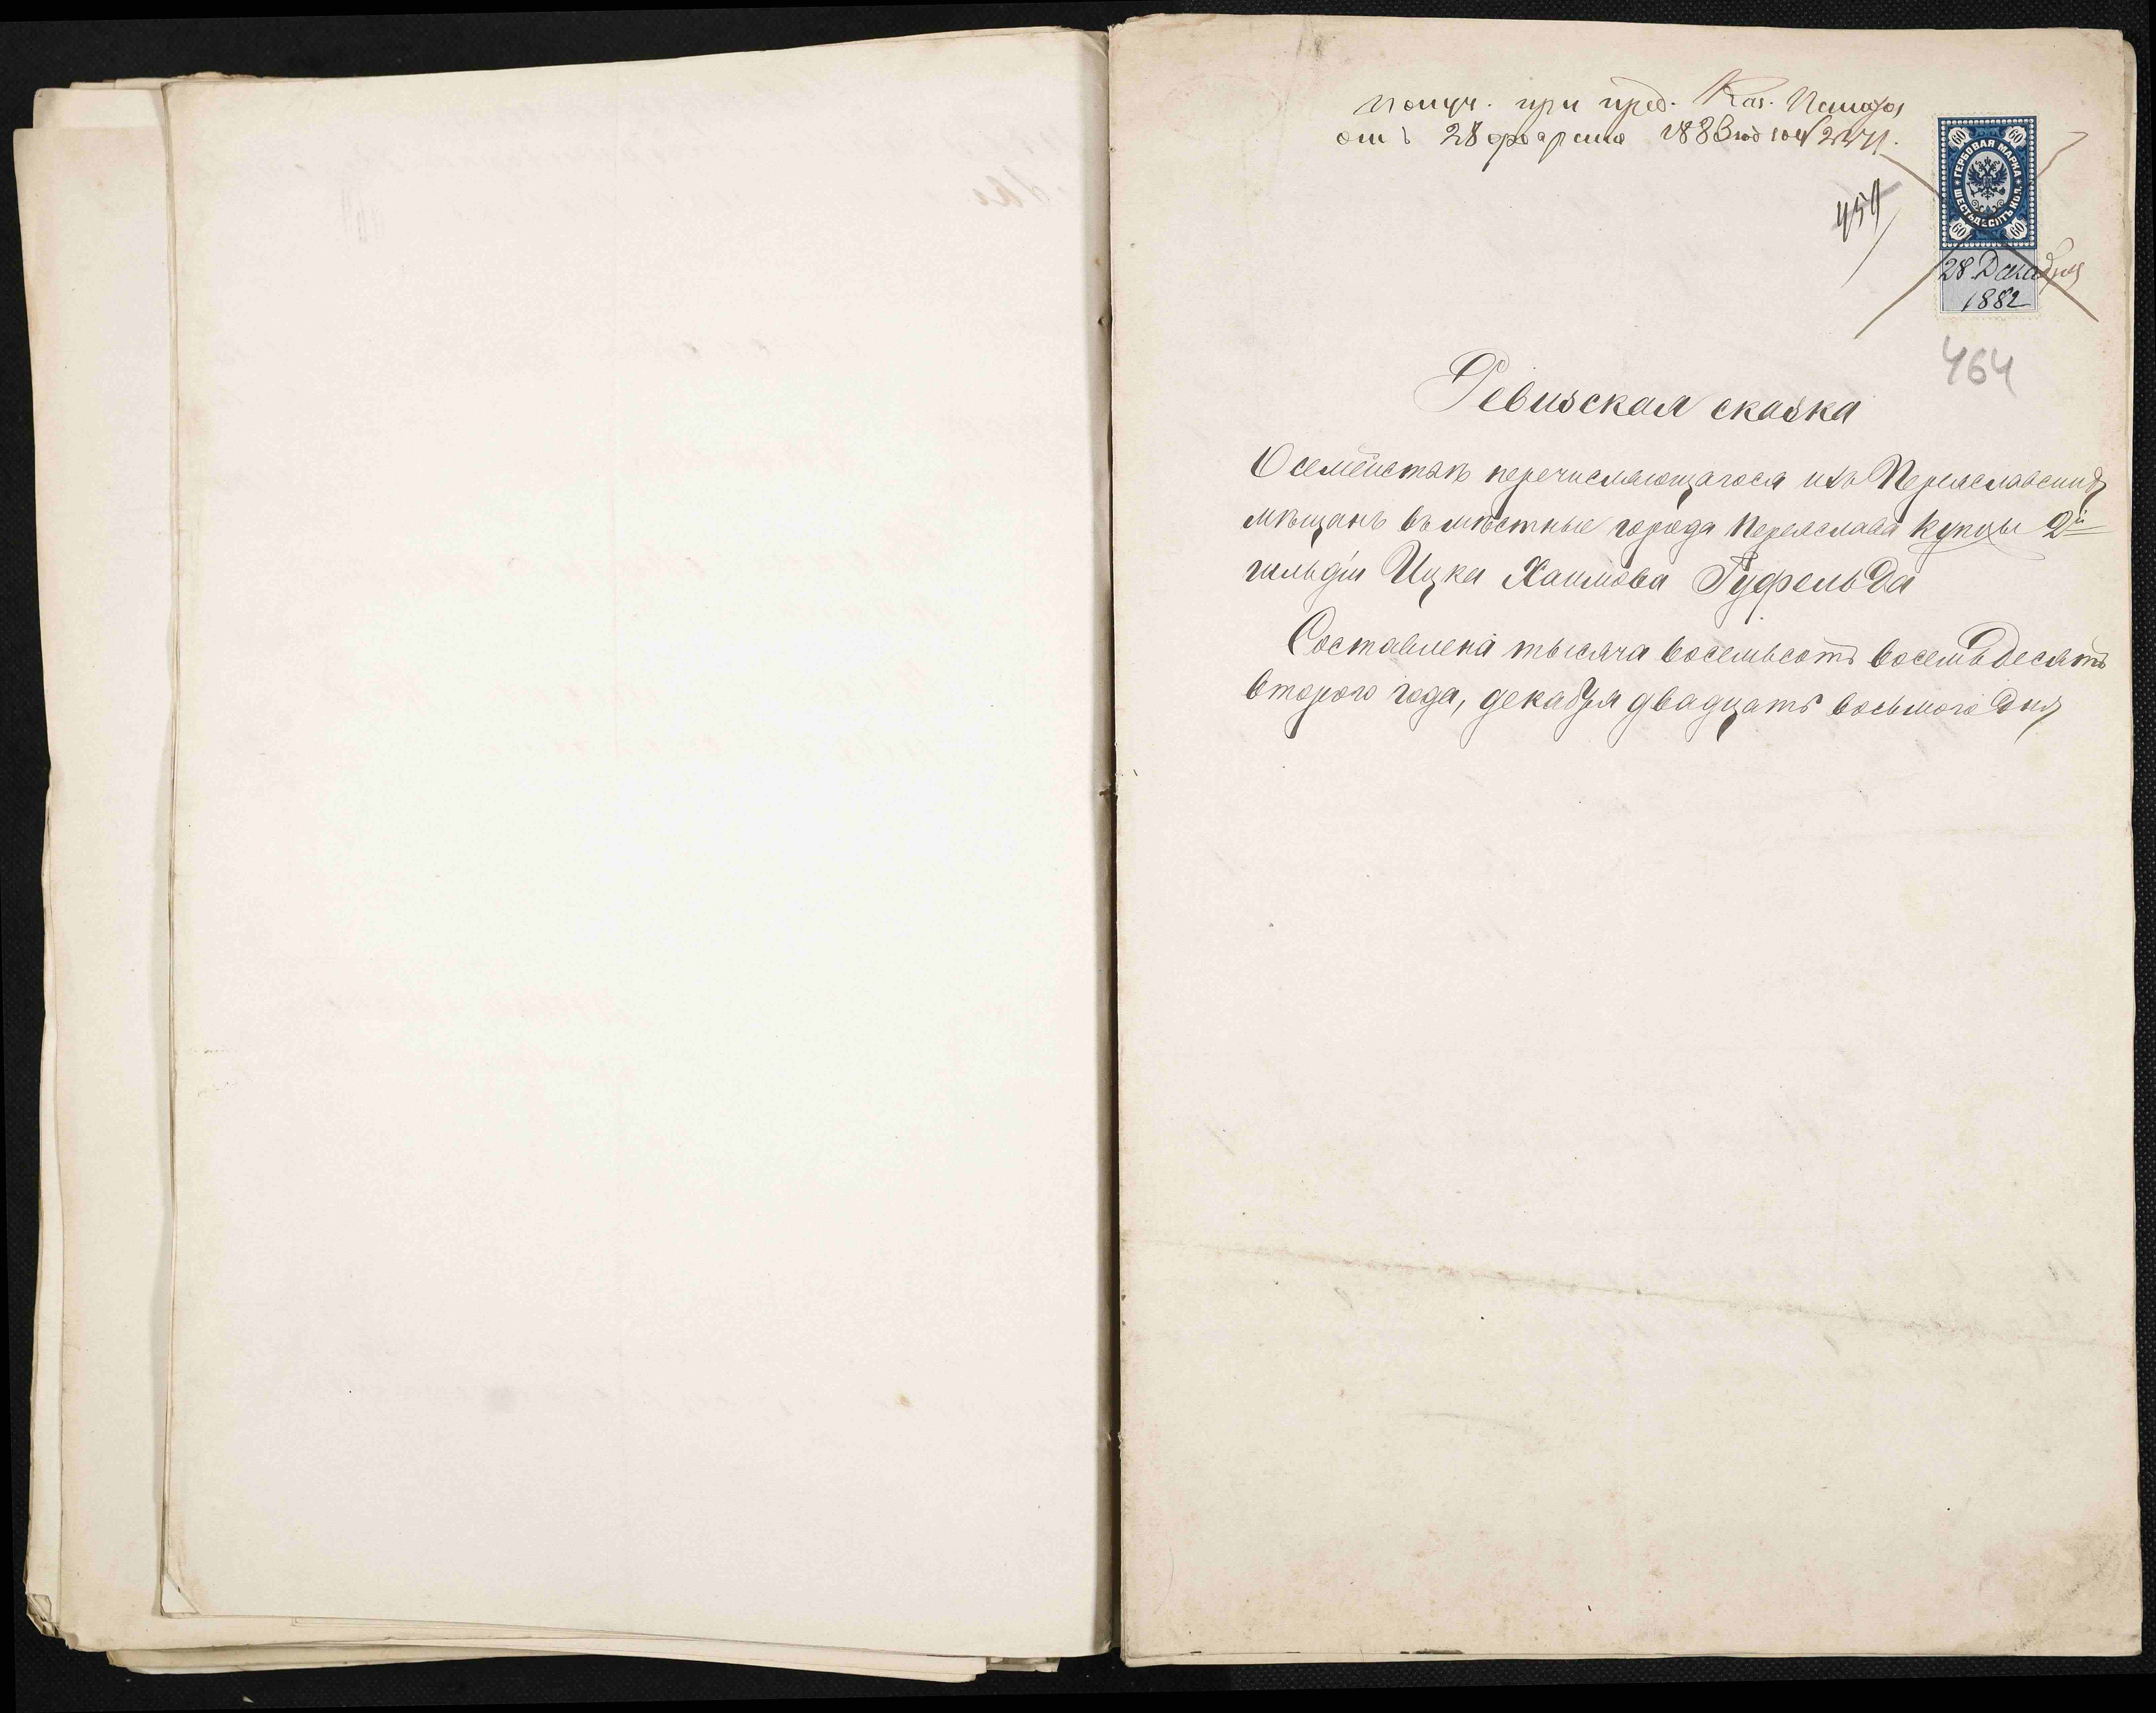 получ. при пред. Каз. Палаты
отъ 28 февраля 1883 года за №
ГЕРБОВАЯ МАРКА
ШЕСТЬДЕСЯТЪ КОП.
60 60
60 60
459
28 Декабря
1882
464
Ревизская сказка
О семействѣ перечисляющагося изъ Переяславскихъ
мѣщанъ въ мѣстные города Переяслава купцы 2й
гильдіи Ицка Хаимова Гуфельда
Составлена тысяча восемьсотъ восемьдесятъ
второго года, декабря двадцать восьмого дня